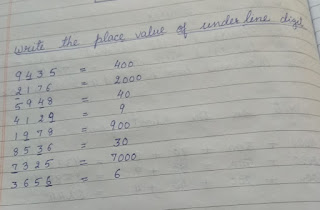 write the place value of under line digit
9435 = 400
2176 = 2000
5948 = 40
4129 = 9
1979 = 900
8536 = 30
7325 = 7000
3656 = 6